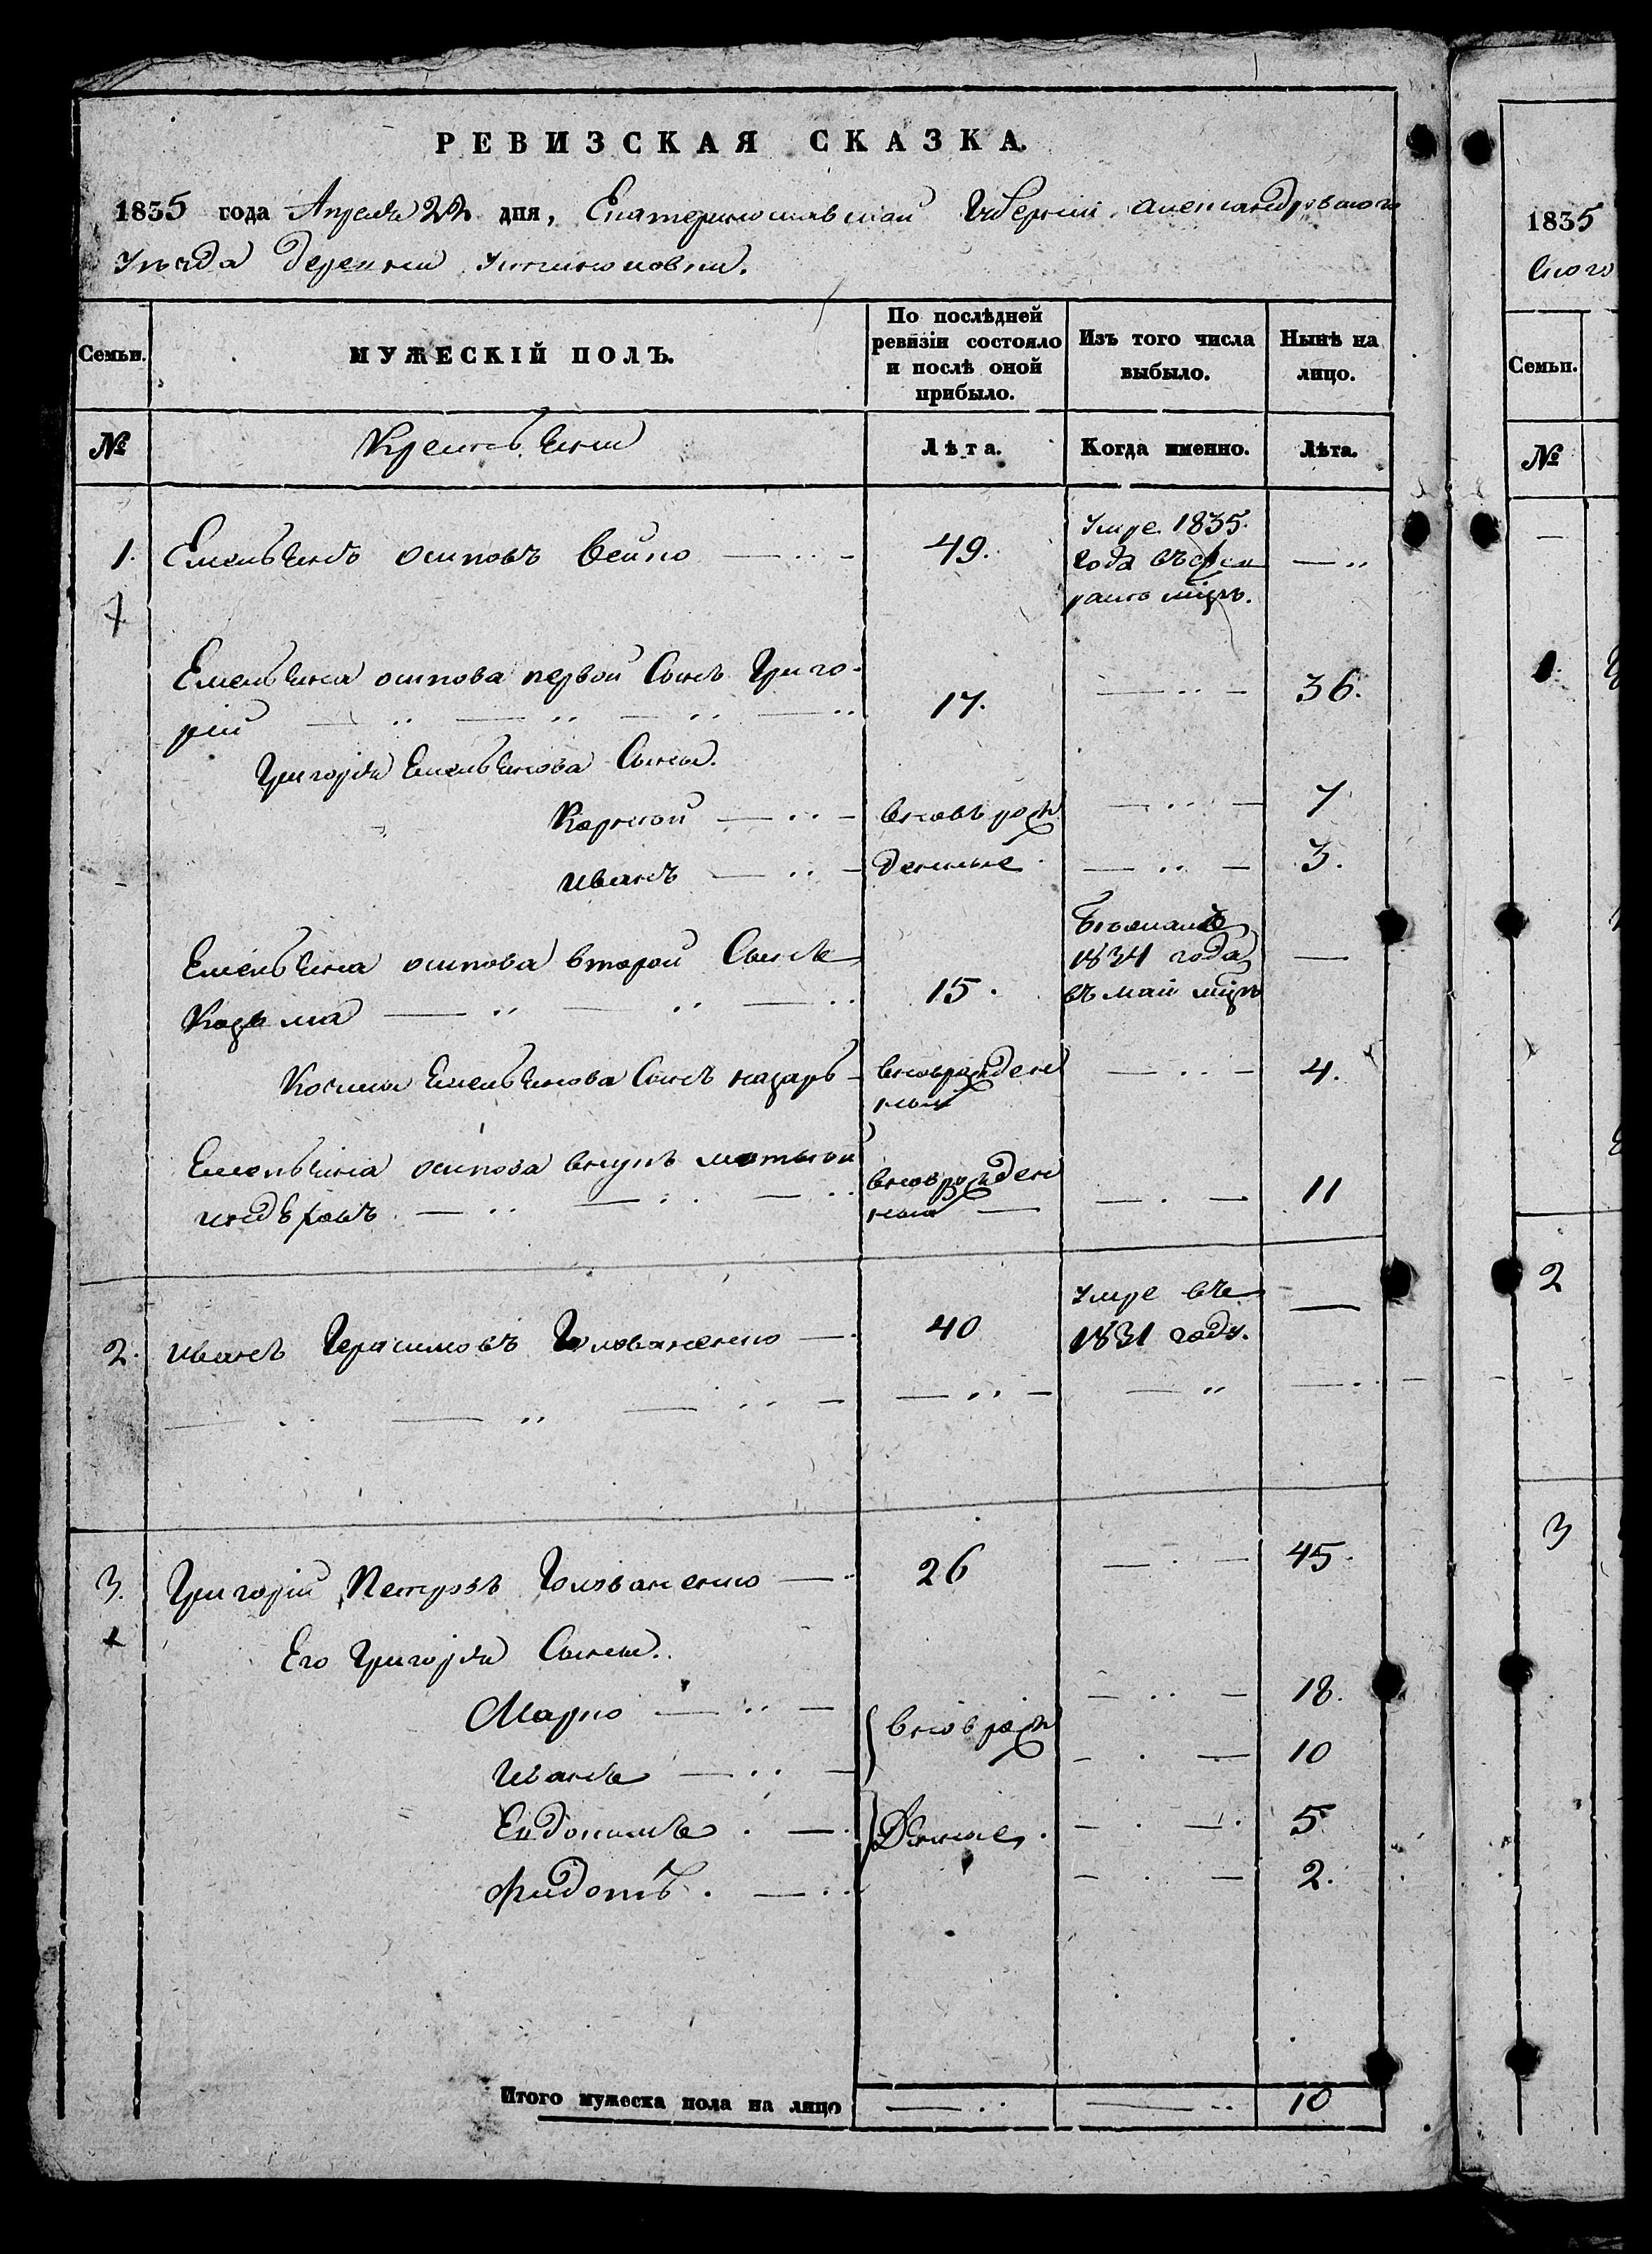 РЕВИЗСКАЯ СКАЗКА.
1835 года Апреля 22 дня, Екатеринославской Губерніи александровского
уѣзда деревни
Семьи.
МУЖЕСКІЙ ПОЛЪ.
По послѣдней ревизіи состояло и послѣ оной прибыло.
Изъ того числа выбыло.
Нынѣ на лицо.
№
Крестьяни
Лѣта.
Когда именно.
Лѣта.
1. Емельянъ осиповъ 49. умре 1835. — ..
года
Емельяна осипова первой Сынъ Григо-
рій 17. — .. — 36.
Григорія Емельянова Сыны.
Корней — .. — вновь рож — .. — 7
иванъ — .. — денные — .. — 3.
Емельяна осипова второй Сынъ
1834 года —
Козьма 15. въ май мцѣ
Косьмы Емельянова Сынъ назаръ — вноврожден — .. — 4.
ный
Емельяна осипова внукъ матвей вноврожден
ный — . — 11
2. иванъ Герасимовъ Голованенко — . 40 умре въ —
1831 году.
3. Григорій Петровъ Голованенко — . 26 — . — 45.
Его Григорія Сыны.
Марко — .. — вноврож — .. — 18.
Иванъ — .. — — . — 10
Евдокимъ . — . денные. — . — . 5
фидотъ . — .. — . — 2.
Итого мужеска пола на лицо — .. — .. 10
1835
ского
Семьи.
№
1.
2
3